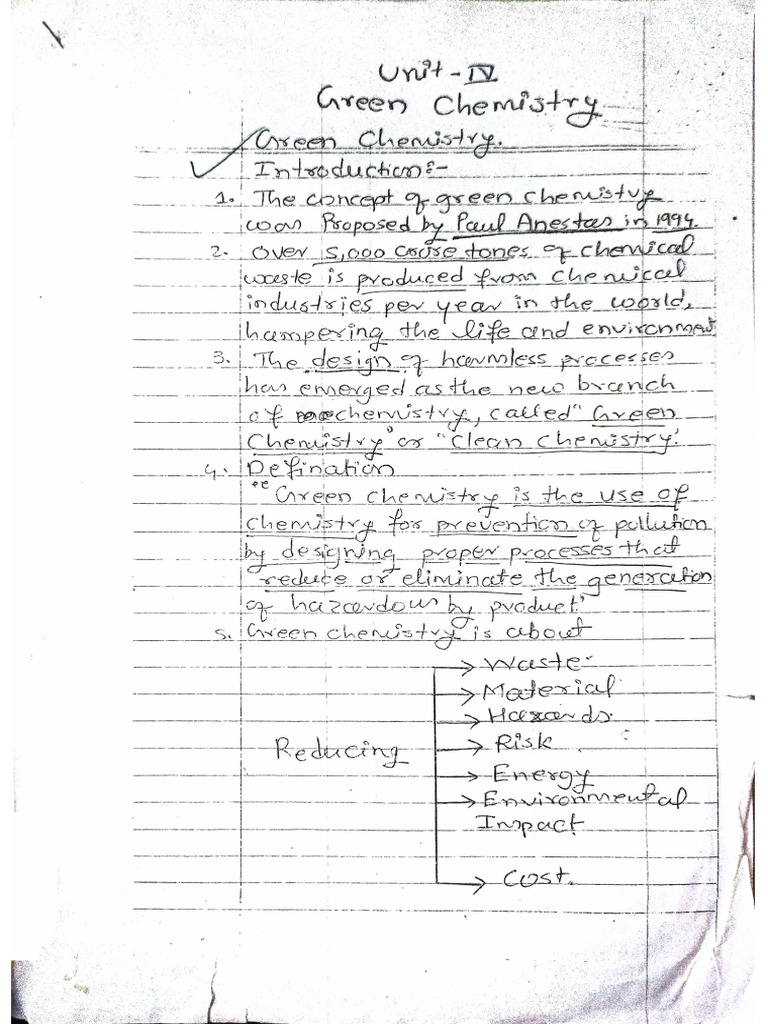 Unit - IV
Green Chemistry
Green Chemistry.
Introduction:-
1. The concept of green chemistry
was Proposed by Paul Anestas in 1994.
2. Over 5,000 crore tones of chemical
waste is produced from chemical
industries per year in the world,
hampering the life and environment
3. The design of harmless processes
has emerged as the new branch
of chemistry, called "Green
Chemistry" or "Clean Chemistry."
4. Defination
"Green chemistry is the use of
chemistry for prevention of pollution
by designing proper processes that
reduce or eliminate the generation
of hazardous by product."
5. Green chemistry is about
→ Waste
→ Material
→ Hazards.
Reducing → Risk
→ Energy
→ Environmental
Impact
→ Cost.